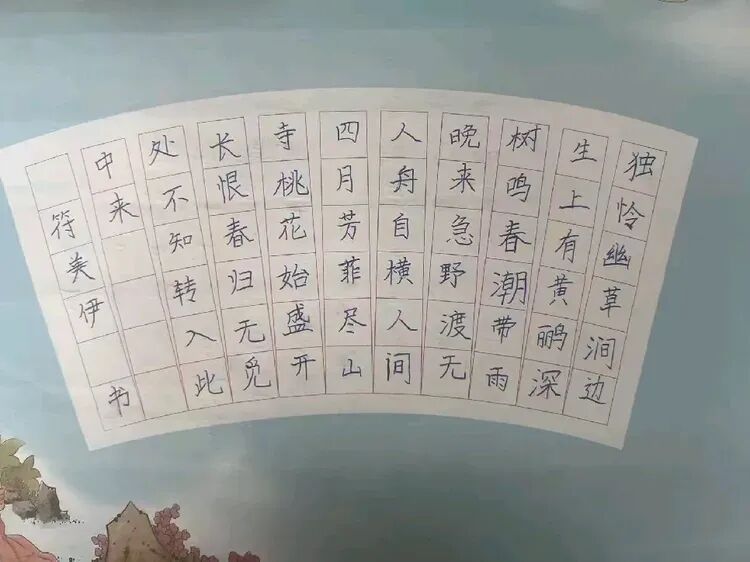 独怜幽草涧边
生上有黄鹂深
树鸣春潮带雨
晚来急野渡无
人舟自横人间
四月芳菲尽山
寺桃花始盛开
长恨春归无觅
处不知转入此
中来
符美伊书